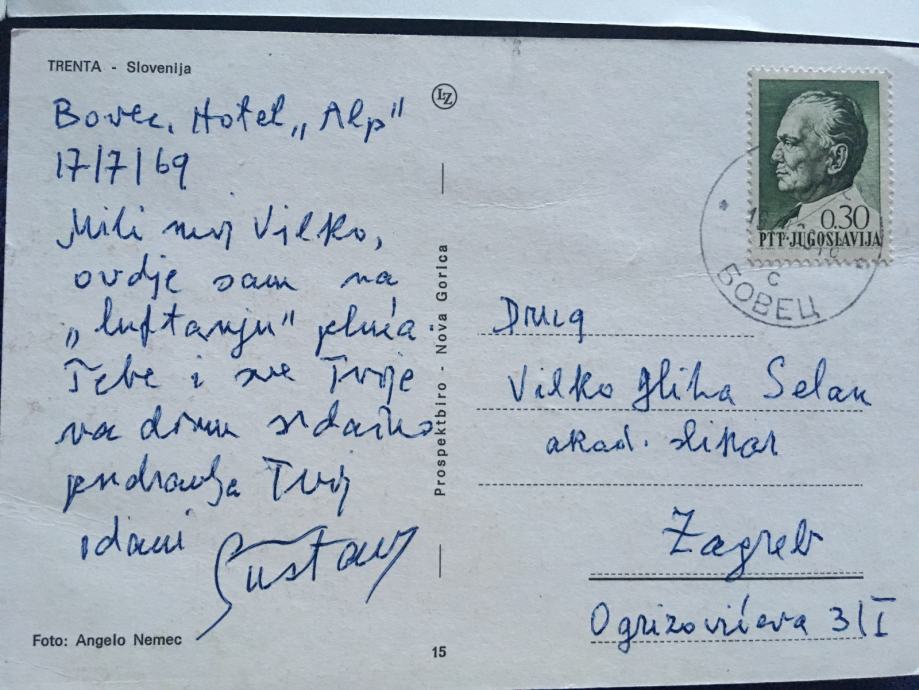 TRENTA - Slovenija
Bovec, Hotel „Alp"
17/7/69
Mili moj Vilko,
ovdje sam na
„luftanju" pluća.
Tebe i sve Tvoje
na domu srdačno
pozdravlja Tvoj
odani
Gustav
Foto: Angelo Nemec
LZ
Prospektbiro - Nova Gorica
15
0.30
PTT·JUGOSLAVIJA
БОВЕЦ
с
Drug
Vilko Gliha Selan
akad. slikar
Zagreb
Ogrizovićeva 3/I